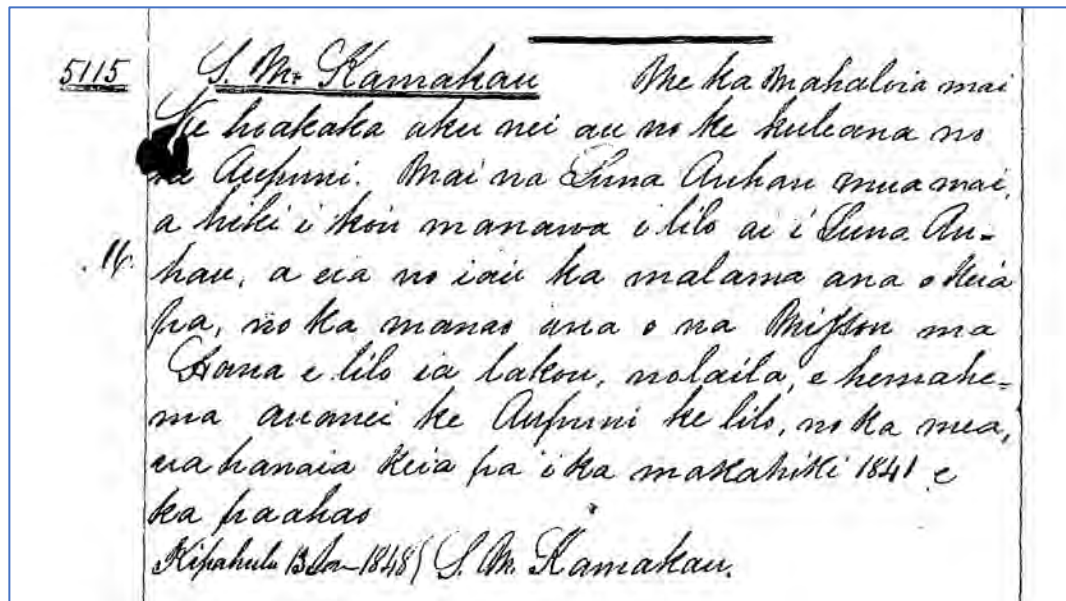 5115 S. M. Kamakau Me ka Mahaloia mai
Ke hoakaka aku nei au no ke kuleana no
ke Aupuni. Mai na Luna Auhau mua mai,
a hiki i koú manawa i lilo ai i Luna Au-
.16. hau, a eia no iaú ka malama ana o keia
pa, no ka manao ana o na Misson ma
Hana e lilo ia lakou, nolaila, e hemahe=
ma auanei ke Aupuni ke lilo, no ka mea,
ua hanaia keia pa i ka makahiki 1841 e
ka paahao
Kipahulu 13 Jan 1848 S. M. Kamakau.